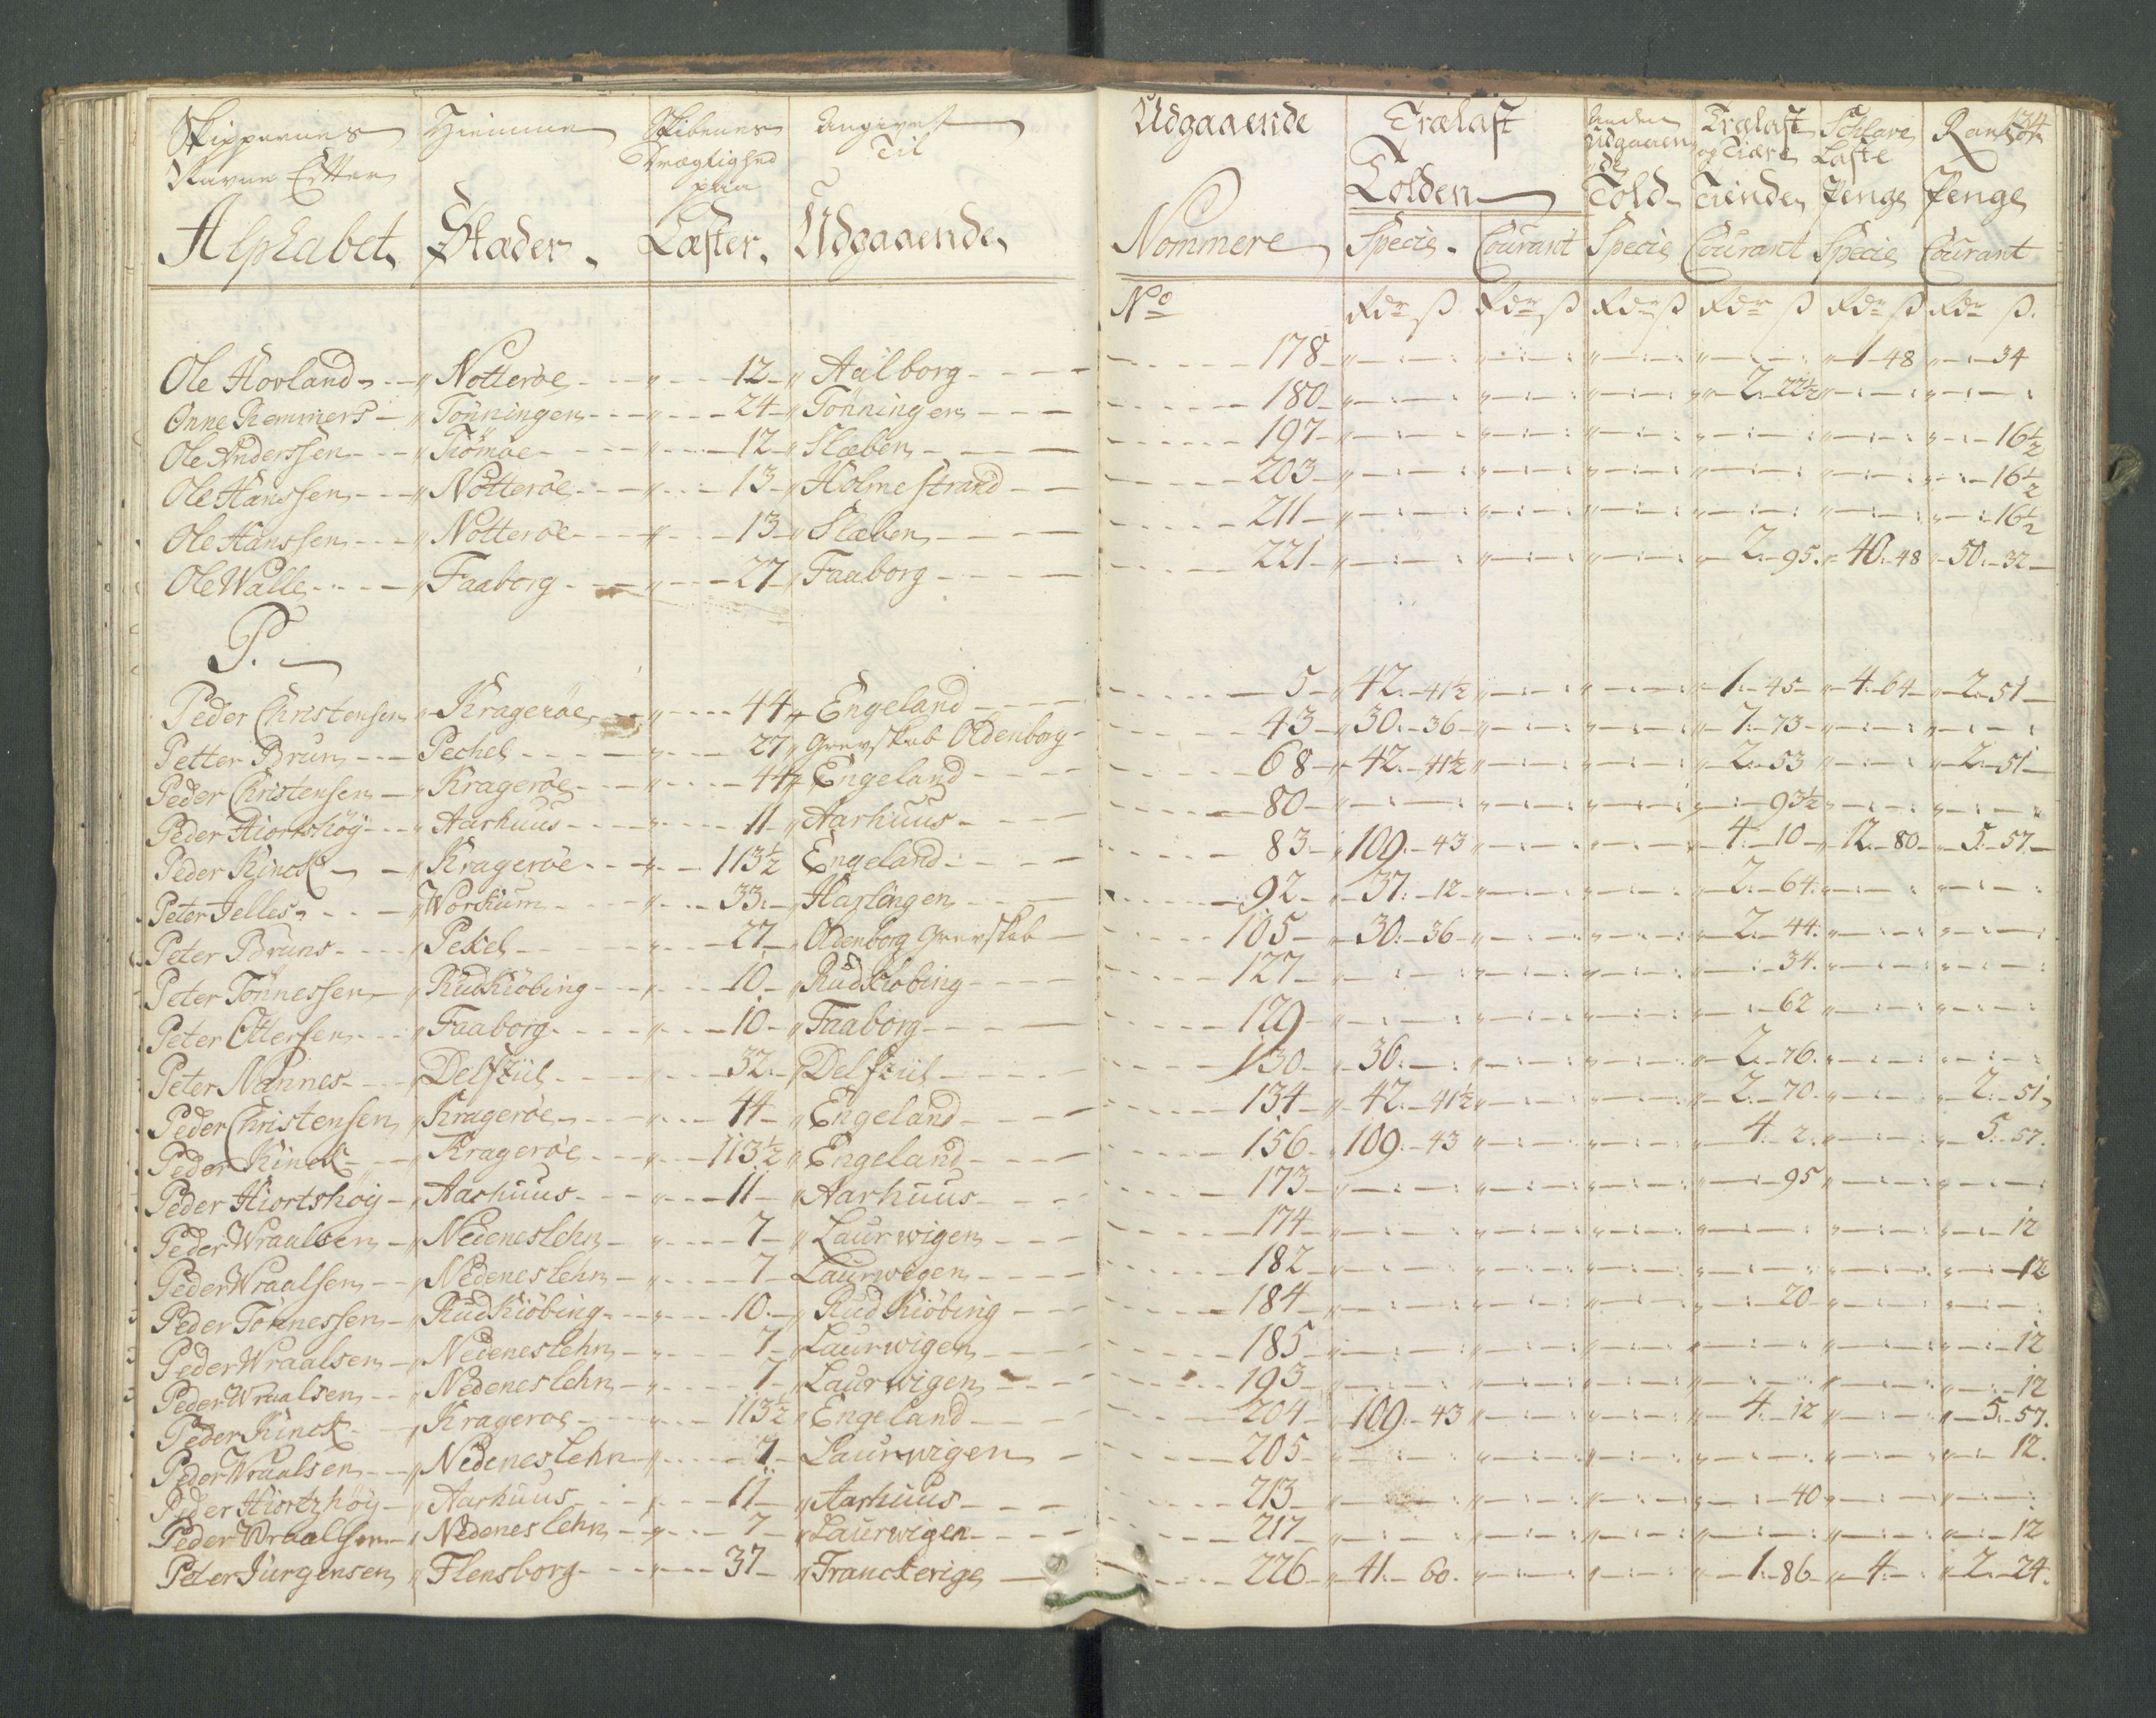 Skippernes Hiemme Skibenes Angivet
Navne Efter Drægtighed Til
paa
Alphabet Stæder Læster Udgaaende
Udgaaende Trælast Anden Trælast Schlave Rantzon 134
Udgaaen og Tiære Laste
de
Tolden Told Tiende Penge Penge
Nommere Specie Courant Specie Courant Specie Courant
No Rdr ß Rdr ß Rdr ß Rdr ß Rdr ß Rdr ß
Ole Hovland Notteröe 12 Aalborg 178 1 48 34
Onne Remmers Tönningen 24 Tönningen 180 2 22½
Ole Anderssen Tiömöe 12 Slæben 197 16½
Ole Hanssen Nötteröe 13 Holmestrand 203 16½
Ole Hanssen Nötteröe 13 Slæben 211 16½
Ole Walle Faaborg 27 Faaborg 221 2 95 40 48 50 32
P.
Peder Christensen Krageröe 44 Engeland 5 42 41½ 1 45 4 64 2 51
Petter Brun Pechel 27 Grevskab Oldenborg 43 30 36 1 73
Peder Christensen Krageröe 44 Engeland 68 42 41½ 2 53 2 51
Peder Hiortshöy Aarhuus 11 Aarhuus 80 93½
Peder Kinck Krageröe 113½ Engeland 83 109 43 4 10 12 80 5 57
Peter Jelles Workum 33 Harlingen 92 37 12 2 64
Peter Bruns Pekel 27 Oldenborg Grevskab 105 30 36 2 44
Peter Tönnessen Rudkiöbing 10 Rudkiöbing 127 34
Peter Ottersen Faaborg 10 Faaborg 129 62
Peter Nannes Delfziil 32 Delfziil 130 36 2 76
Peder Christensen Krageröe 44 Engeland 134 42 41½ 2 70 2 51
Peder Kinck Krageröe 113½ Engeland 156 109 43 4 2 5 57
Peder Hiortshöy Aarhuus 11 Aarhuus 173 95
Peder Wraalsen Nedeneslehn 7 Laurwigen 174 12
Peder Wraalsen Nedeneslehn 7 Laurwegen 182 12
Peder Tönnessen Rudkiöbing 10 Rudkiöbing 184 20
Peder Wraalsen Nedeneslehn 7 Laurwigen 185 12
Peder Wraalsen Nedeneslehn 7 Laurwigen 193 12
Peder Kinck Krageröe 113½ Engeland 204 109 43 4 12 5 57
Peder Wraalsen Nedeneslehn 7 Laurwigen 205 12
Peder Hiortzhöy Aarhuus 11 Aarhuus 213 40
Peder Wraalsen Nedeneslehn 7 Laurwigen 217 12
Peter Jürgensen Flensborg 37 Franckerige 226 41 60 1 86 4 2 24